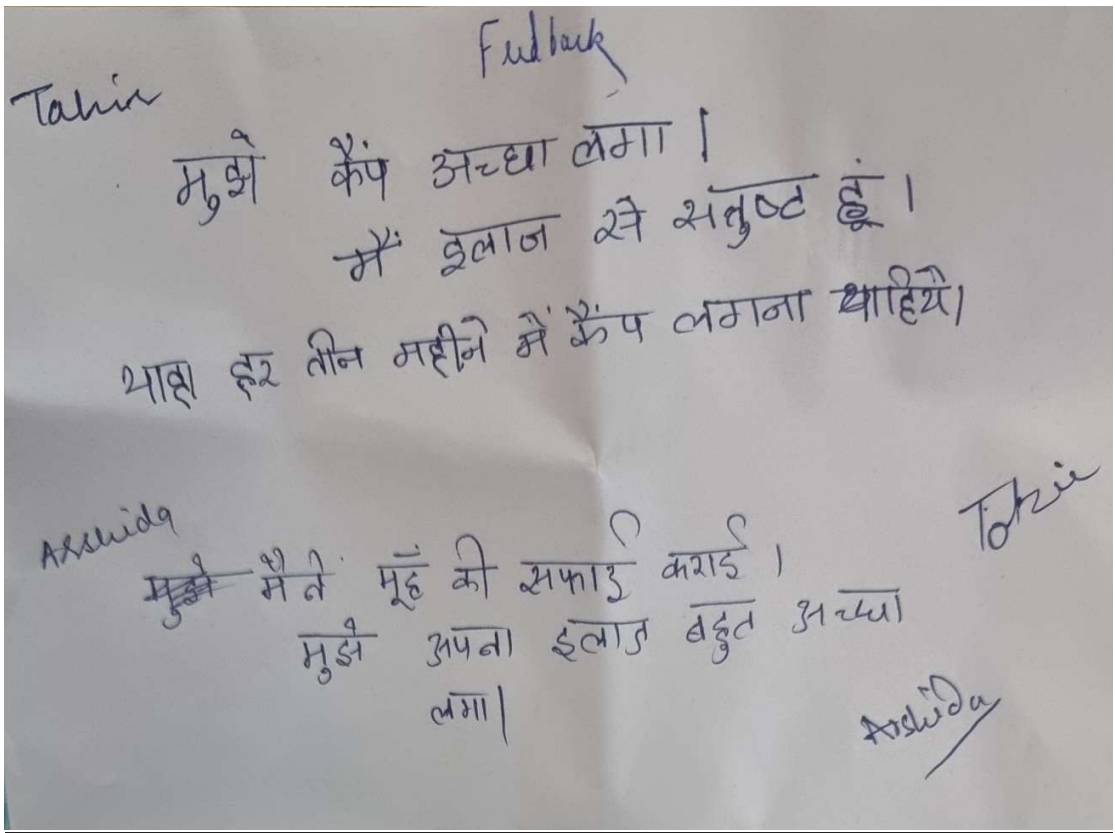 Feedback
Tahir
मुझे कैंप अच्छा लगा।
मैं इलाज से सतुष्ट हूं।
याहा हर तीन महीने में कैंप लगना चाहिये।
Tahir
Arshida
मैने मूहँ की सफाई कराई।
मुझे अपना इलाज बहुत अच्छा
लगा।
Arshida